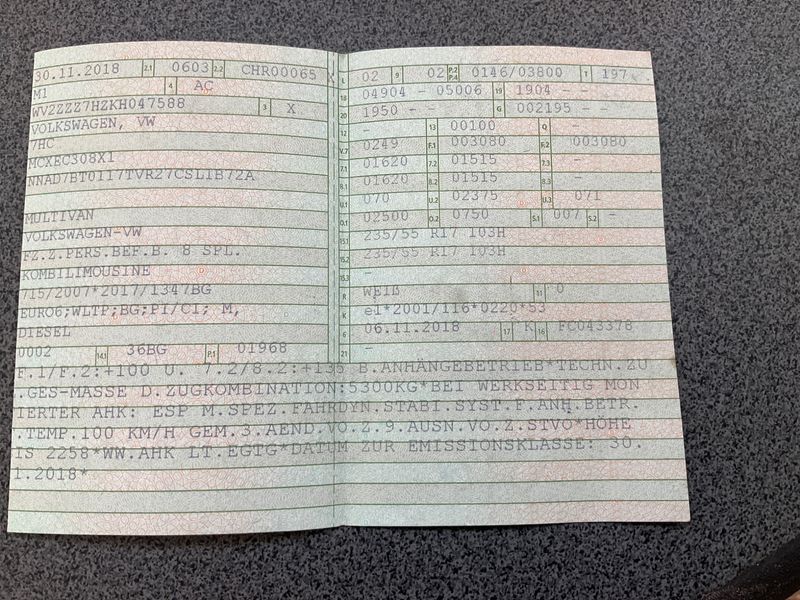 30.11.2018 2.1 0603 2.2 CHR00065
M1 4 AC
WV2ZZZ7HZKH047588 3 X
VOLKSWAGEN, VW
7HC
MCXEC308X1
NNAD7BT0117TVR27CSL1B72A
MULTIVAN
VOLKSWAGEN-VW
FZ.Z.PERS.BEF.B. 8 SPL.
KOMBILIMOUSINE
715/2007*2017/1347BG
EURO6;WLTP;BG;PI/CI; M,
DIESEL
0002 14.1 36BG P.1 01968
L 02 9 02 P.2 P.4 0146/03800 T 197
18 04904 - 05006 19 1904 - -
20 1950 - - G 002195 - -
12 - 13 00100 Q -
V.7 0249 F.1 003080 F.2 003080
7.1 01620 7.2 01515 7.3 -
8.1 01620 8.2 01515 8.3 -
U.1 070 U.2 02375 U.3 071
O.1 02500 O.2 0750 S.1 007 S.2 -
15.1 235/55 R17 103H
15.2 235/55 R17 103H
15.3 -
R WEIß 11 0
K e1*2001/116*0220*53
6 06.11.2018 17 K 16 FC043378
21 -
F.1/F.2:+100 U. 7.2/8.2:+135 B.ANHÄNGEBETRIEB*TECHN.ZU
.GES-MASSE D.ZUGKOMBINATION:5300KG*BEI WERKSEITIG MON
IERTER AHK: ESP M.SPEZ.FAHRDYN.STABI.SYST.F.ANH.BETR.
.TEMP.100 KM/H GEM.3.AEND.VO.Z.9.AUSN.VO.Z.STVO*HÖHE
IS 2258*WW.AHK LT.EGTG*DATUM ZUR EMISSIONSKLASSE: 30.
1.2018*